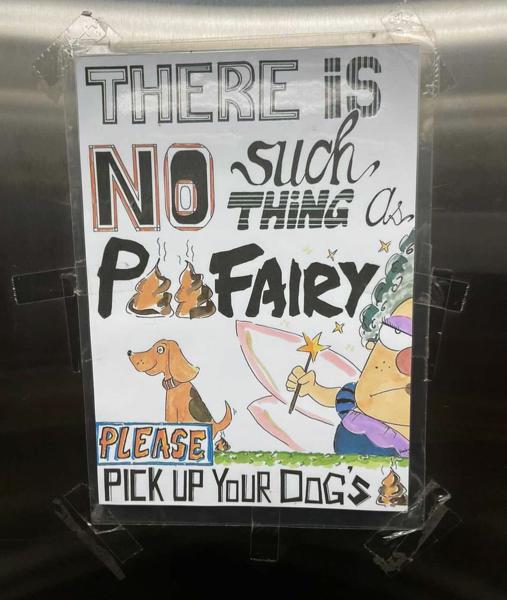 THERE IS
NO such
THING as
P💩💩 FAIRY
PLEASE
PICK UP YOUR DOG'S 💩